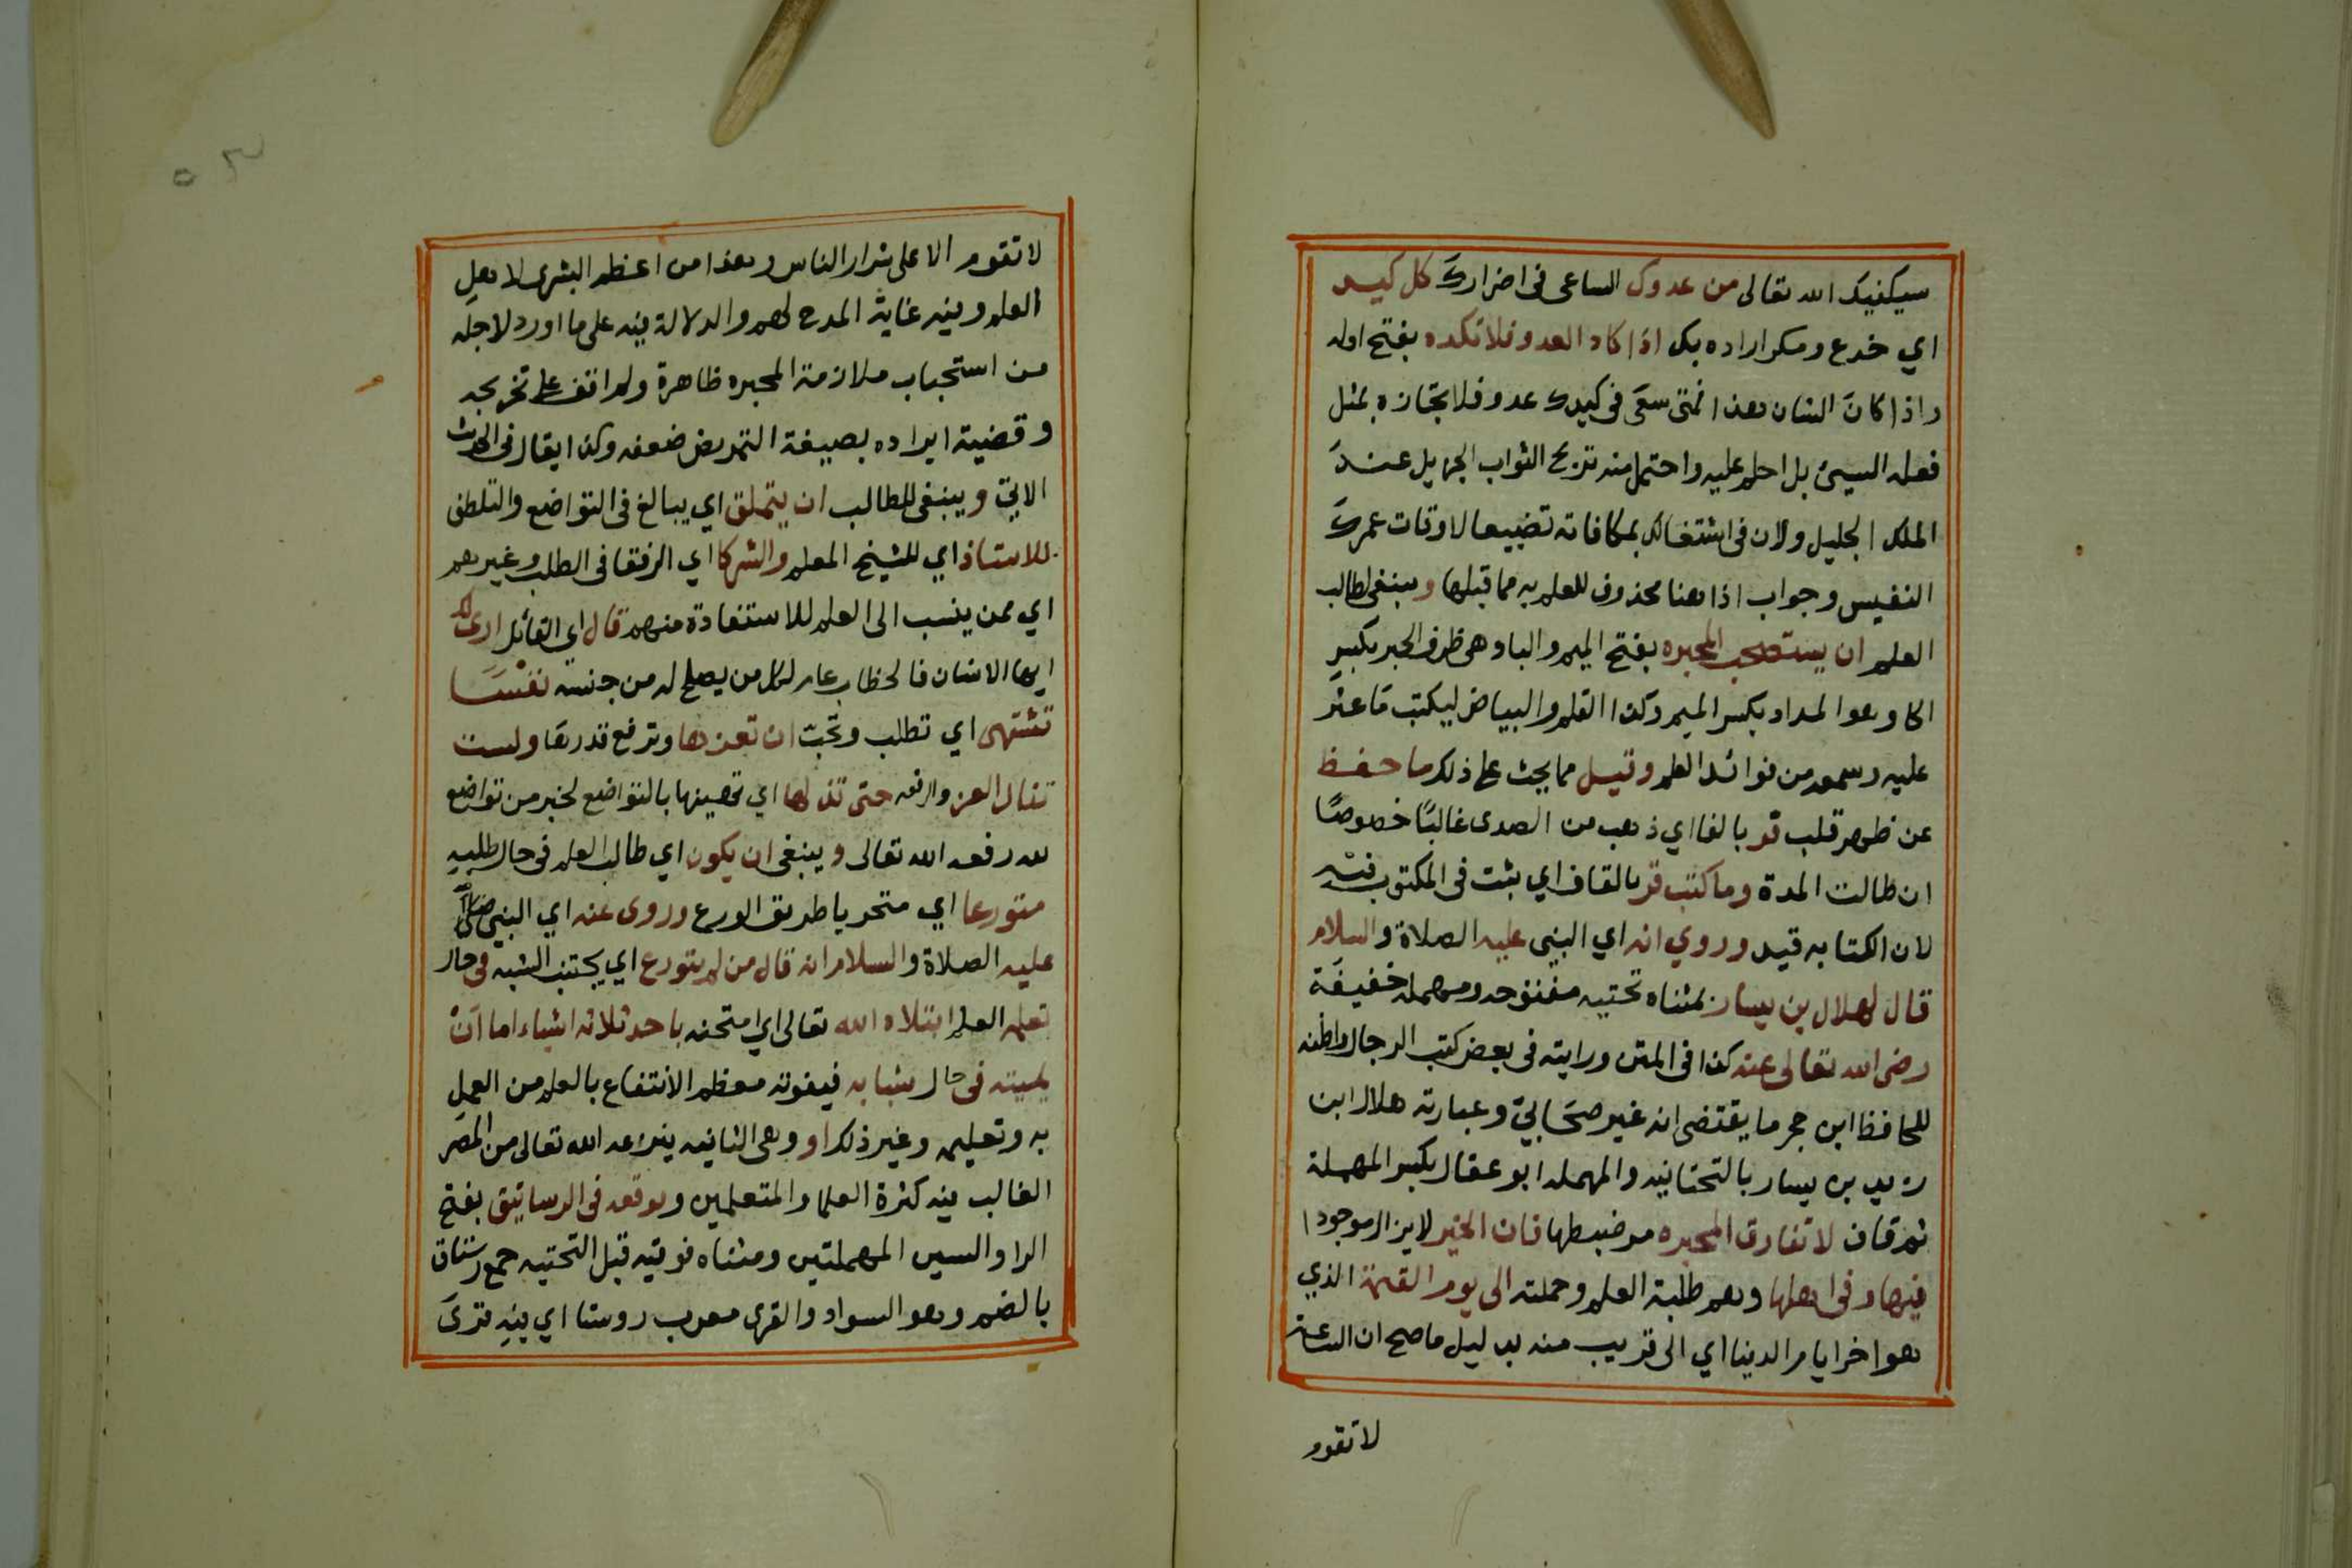 سيكفيك الله تعالى من عدوك الساعى فى اضراركَ كل كيد
اي خدع ومكر اراده بك اذا كاد العدو فلا تكده بفتح اوله
واذا كانَ الشان هذا فمتى سعَى فى كيدك عدو فلا تجازه بمثل
فعله السيئ بل احلم عليه واحتمل منه تربح الثواب الجزيل عندَ
الملك الجليل ولان فى اشتغالك بمكافاته تضييعا لاوقات عمركَ
النفيس وجواب اذا هنا محذوف للعلم به مما قبلها وينبغى لطالب
العلم ان يستصحب المحبره بفتح الميم والبا وهى ظرف الحبر بكسر
الحا وهو المداد بكسر الميم وكذا القلم والبياض ليكتب مَا عثر
عليه وسمعه من فوائد العلم وقيل مما يحث على ذلك ما حفظ
عن ظهر قلب فر بالفا اي ذهب من الصدى غالبًا خصوصًا
ان طالت المدة وما كتب قر بالقاف اي ثبت فى المكتوب فيه
لان الكتابه قيد وروي انه اي النبى عليه الصلاة والسلام
قال لهلال بن يسار بمثناه تحتيه مفتوحه ومهمله خفيفَة
رضى الله تعالى عنه كذا فى المتن ورايته فى بعض كتب الرجال واظنه
للحافظ ابن حجر ما يقتضى انه غير صحَابيّ وعبارته هلال ابن
زيد بن يسار بالتحتانيه والمهمله ابو عقال بكسر المهملة
ثم قاف لا تفارق المحبره مر ضبطها فان الخير لا يزال موجودا
فيها وفى اهلها وهم طلبة العلم وحملته الى يوم القيمة الذي
هو اخر ايام الدنيا اي الى قريب منه بدليل ما صح ان الساعة
لا تقوم
لا تقوم الا على شرار الناس وهذا من اعظم البشرى لاهل
العلم وفيه غاية المدح لهم والدلالة فيه على ما اورد لاجله
من استحباب ملازمة المحبره ظاهرة ولم اقف على تخريجه
وقضية ايراده بصيغة التمريض ضعفه وكذا يقال فى الحديث
الاتيّ وينبغى للطالب ان يتملق اي يبالغ فى التواضع والتلطف
للاستاذ اي للشيخ المعلم والشركا اي الرفقا فى الطلب وغيرهم
اي ممن ينسب الى العلم للاستفادة منهم قال اي القائل ارى لك
ايها الانسان فالخطاب عام لكل من يصلح له من جنسه نفسَا
تشتهى اي تطلب وتحبّ ان تعزها وترفع قدرهَا ولست
تنال العز والرفعه حتى تذلها اي تهينها بالتواضع لخبر من تواضع
لله رفعه الله تعالى وينبغى ان يكون اي طالب العلم فى حال طلبه
متورعا اي متحريا طريق الورع وروى عنه اي النبى صلى
عليه الصلاة والسلام انه قال من لم يتورع اي يجتنب الشبه فى حال
تعلمه العلم ابتلاه الله تعالى اي امتحنه باحد ثلاثه اشياء اما اَنْ
يميته فى حال شبابه فيفوته معظم الانتفاع بالعلم من العمل
به وتعليمه وغير ذلك او وهى الثانيه ينزعه الله تعالى من المصَر
الغالب فيه كثرة العلما والمتعلمين ويوقعه فى الرساتيق بفتح
الرا والسين المهملتين ومثناه فوقيه قبل التحتيه جمع رستاق
بالضم وهو السواد والقرى معرب روستا اي فيه قرىَ